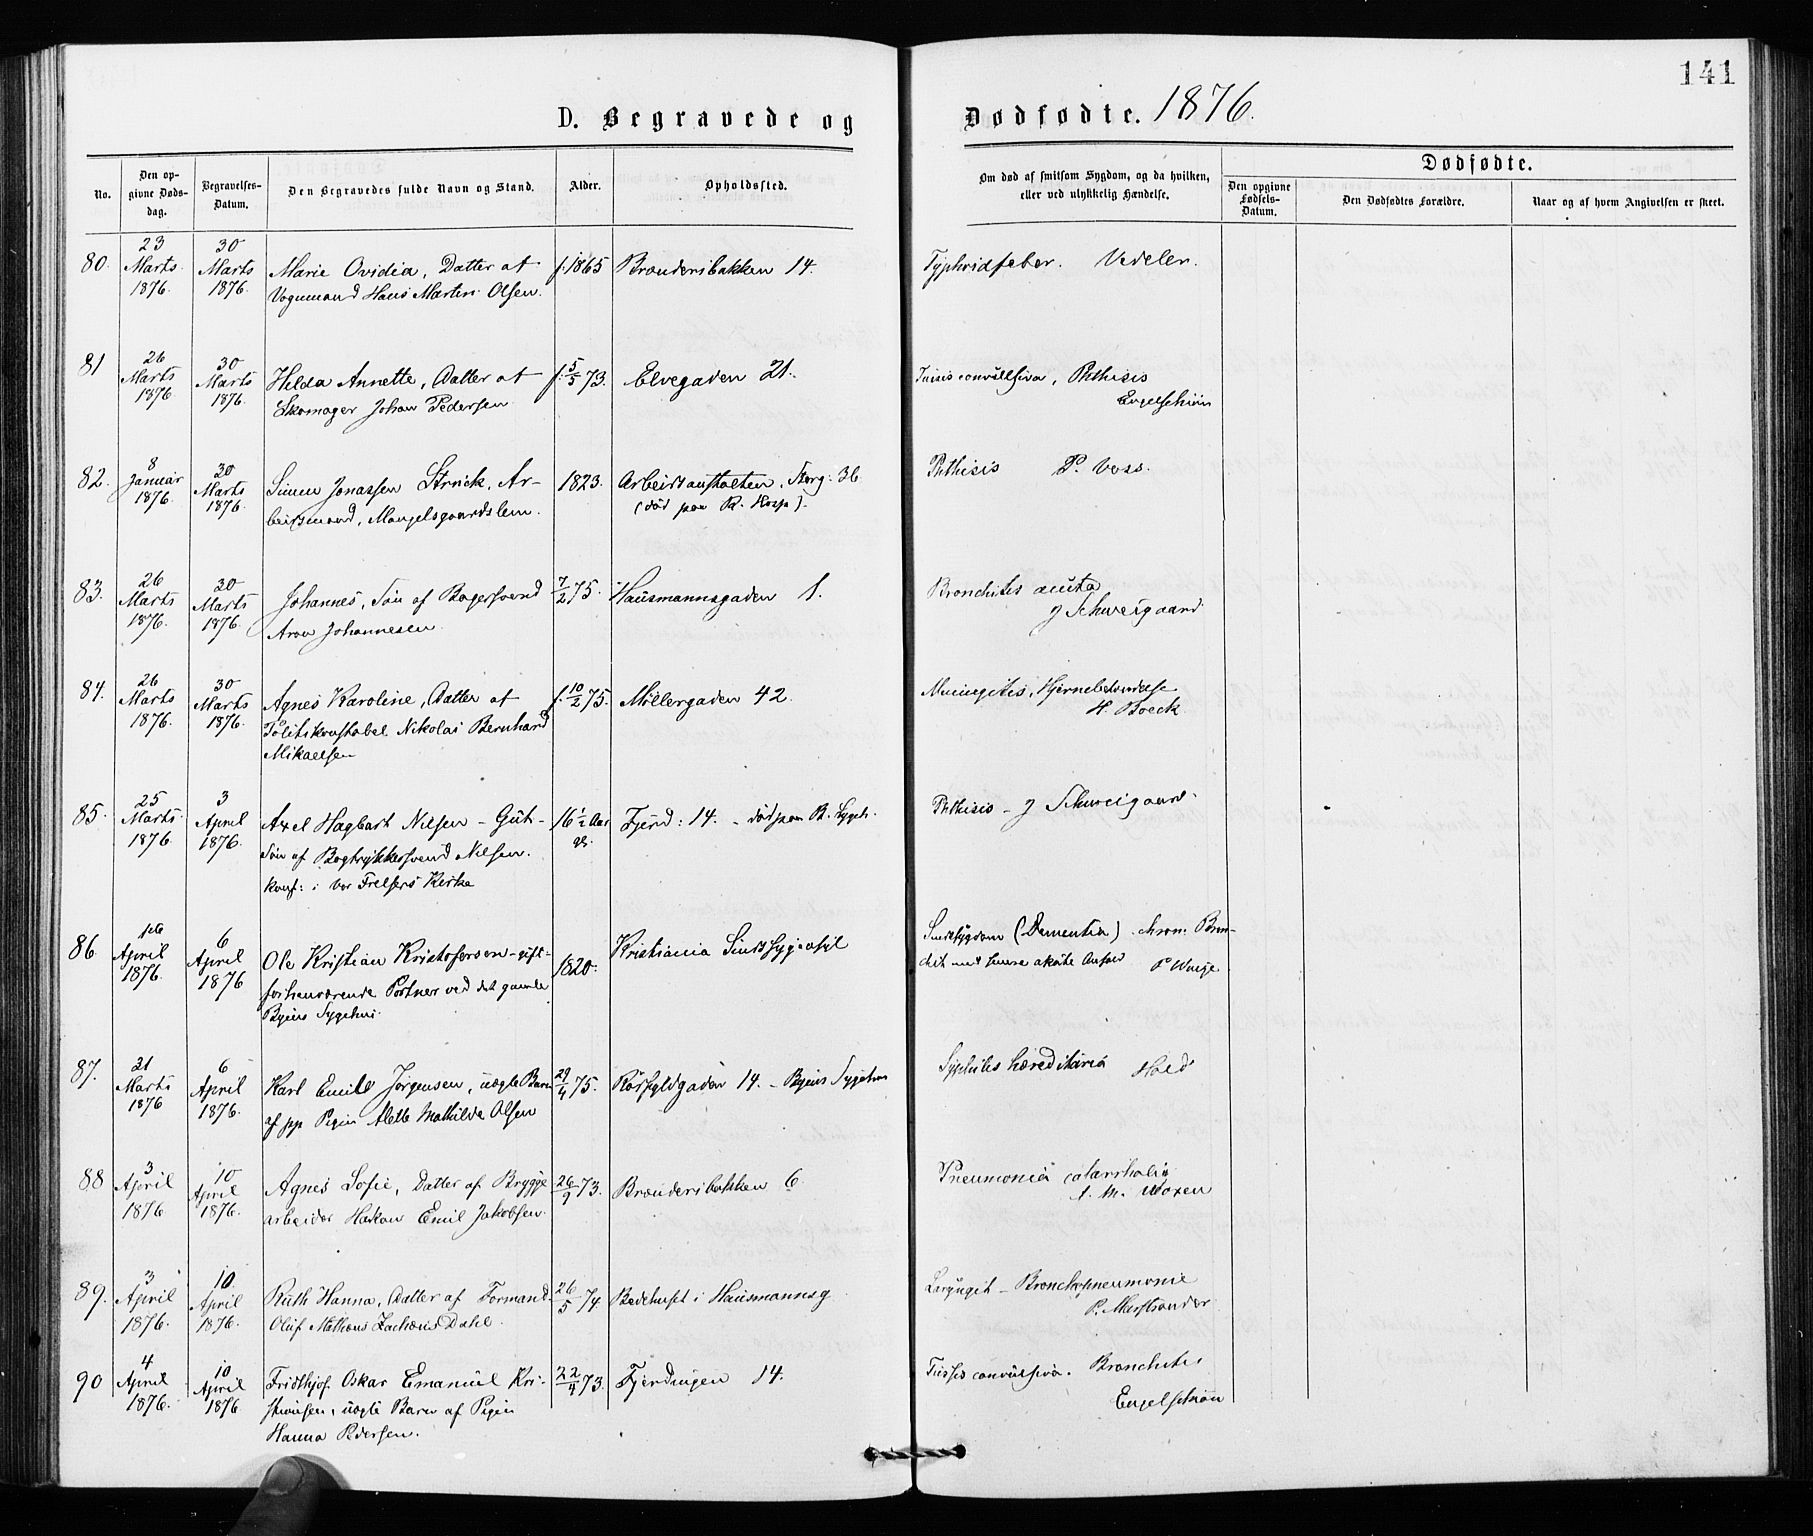 141
D. Begravede og Dødfødte. 1876.
No. Den opgivne Dødsdag. Begravelses-Datum. Den Begravedes fulde Navn og Stand. Alder. Opholdssted. Om død af smitsom Sygdom, og da hvilken, eller ved ulykkelig Hændelse. Dødfødte. Den opgivne Fødsels-Datum. Den Dødfødtes Forældre. Naar og af hvem Angivelsen er skeet.
80. 23 Marts 1876. 30 Marts 1876. Marie Ovidia, Datter af f. 1865 Brændersbakken 14. Typhoidfeber. Vedeler.
Vognmand Hans Martin Olsen.
81 26 Marts 1876 30 Marts 1876. Hilda Annette, Datter af f. 5/5 73. Elvegaden 21. Tussis convulsiva, Phthisis
Skomager Johan Pedersen Engelschiøn
82. 8 Januar 1876. 30 Marts 1876. Simen Jonassen Strück, Ar- 1823. Arbeidsanstalten, Storg: 36 Phthisis P. Voss.
beidsmand, Mangelsgaardslem. (død paa R. Hosp).
83. 26 Marts 1876. 30 Marts 1876. Johannes, Søn af Bagersvend 7/2 75. Hausmannsgaden 1. Bronchitis acuta
Aron Johannesen J Schweigaard
84. 26 Marts 1876. 30 Marts 1876. Agnes Karoline, Datter af f. 10/2 75. Møllergaden 42. Meningitis, Hjernebetændelse
Politikonstabel Nikolai Bernhard H. Boeck
Mikaelsen
85. 25 Marts 1876 3 April 1876. Axel Hagbart Nilsen - Gut- 16 1/2 Aar gl. Fjerd: 14. - død paa B. Sygeh. Phthisis - J Schweigaard
Søn af Bogtrykkersvend Nilsen.
konf: i Vor Frelsers Kirke
86. April 1876. 6 April 1876 Ole Kristian Kristofersen - gift - 1820. Kristiania Sindssygeasyl Sindssygdom (Dementia). chron: Bron-
forhenværende Portner ved det gamle chit med P Winge
Byens Sygehus.
87. 31 Marts 1876 6 April 1876. Karl Emil Jørgensen, uægte Barn 29/4 75. Rørfyldgaden 14. - Byens Sygehus Syphilis hæreditaria Hoed
af pp Pigen Alette Mathilde Olsen
88 3 April 1876 10 April 1876. Agnes Sofie, Datter af Brygge- 26/9 73. Brændersbakken 6. Pneumonia catarrhalis
arbeider Hakon Emil Jakobsen.
89. 3 April 1876. 10 April 1876. Ruth Hanna, Datter af Formand 26/5 74. Bedehuset i Hausmannsg. Laryngit - Bronchopneumonie
Oluf Mathæus Zachariæ Dahl. P. Marstrander.
90 4 April 1876. 10 April 1876 Fridthjof Oskar Emanuel Kri- 22/4 73. Fjerdingen 14. Tussis convulsiva. Bronchitis
stiansen, uægte Barn af Pigen Engelschiøn
Hanna Pedersen.